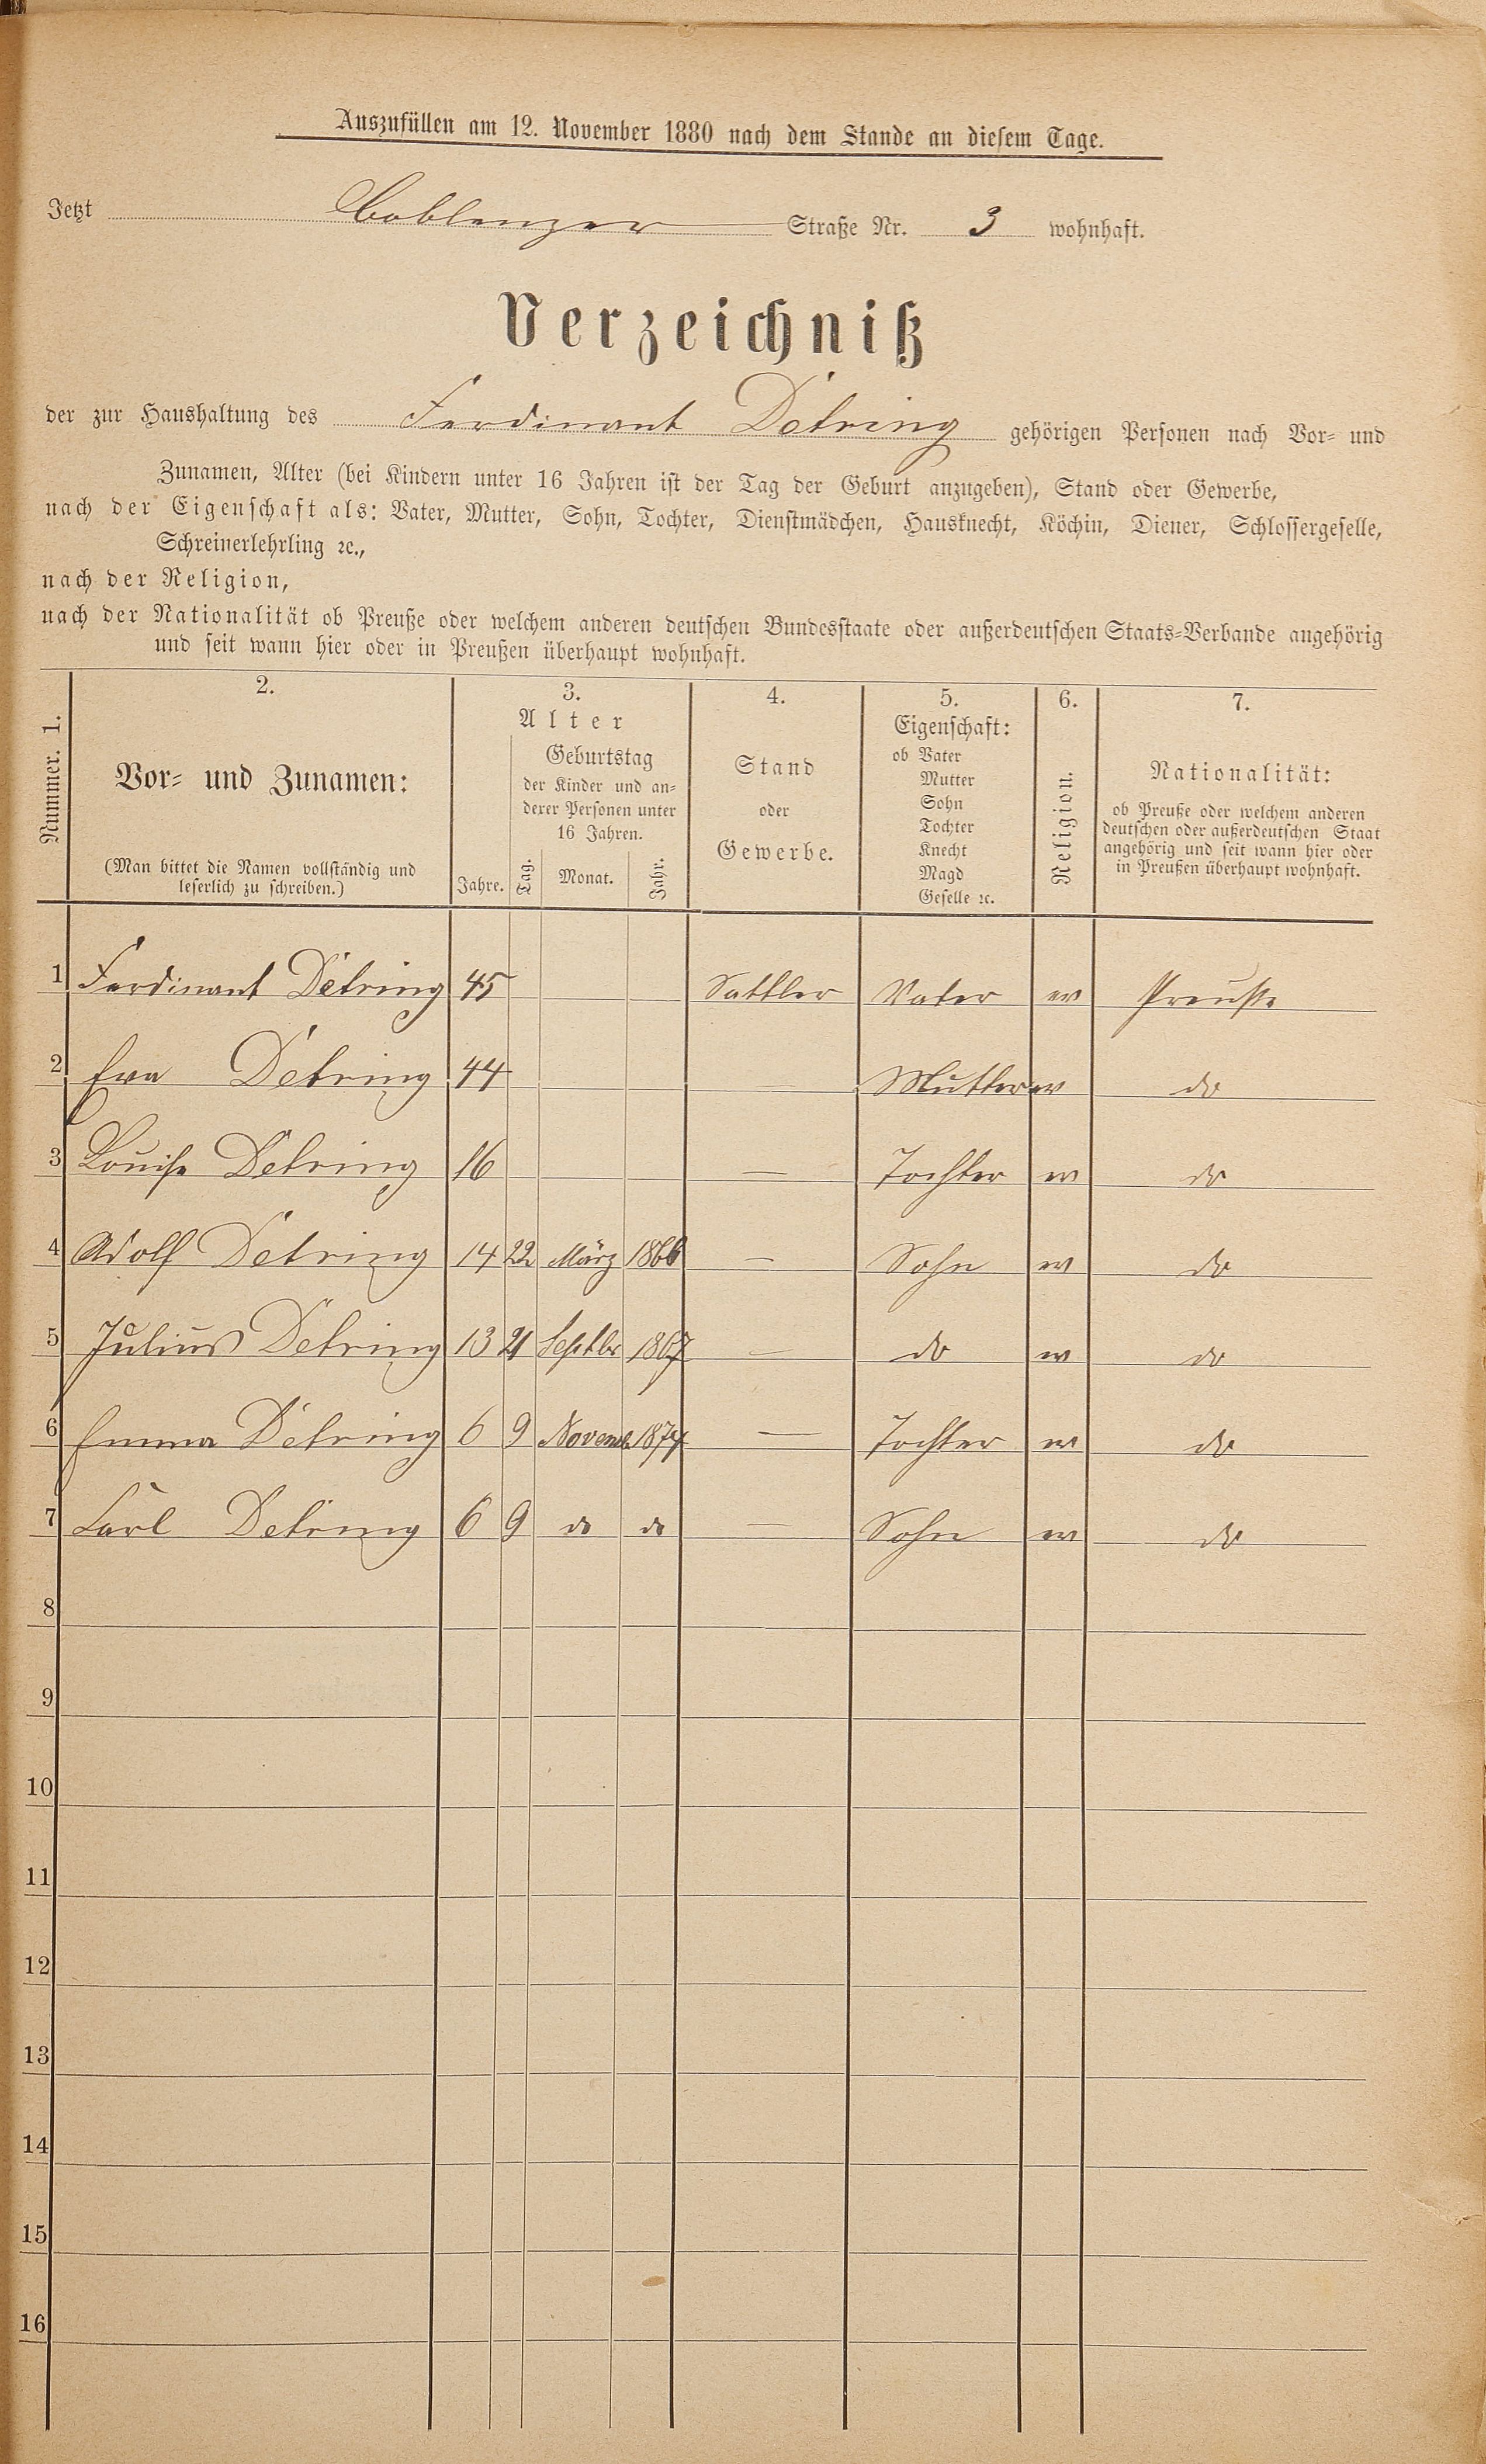 Auszufüllen am 12. November 1880 nach dem Stande an diesem Tage.
Jetzt Coblenzer Straße Nr. 3 wohnhaft.
Verzeichniß
der zur Haushaltung des Ferdinant Detring gehörigen Personen nach Vor- und
Zunamen, Alter (bei Kindern unter 16 Jahren ist der Tag der Geburt anzugeben), Stand oder Gewerbe,
nach der Eigenschaft als: Vater, Mutter, Sohn, Tochter, Dienstmädchen, Hausknecht, Köchin, Diener, Schlossergeselle,
Schreinerlehrling ꝛc.,
nach der Religion,
nach der Nationalität ob Preuße oder welchem anderen deutschen Bundesstaate oder außerdeutschen Staats-Verbande angehörig
und seit wann hier oder in Preußen überhaupt wohnhaft.
Nummer. 1.
2.
Vor- und Zunamen:
(Man bittet die Namen vollständig und
leserlich zu schreiben.)
3.
Alter
Jahre.
Geburtstag
der Kinder und an-
derer Personen unter
16 Jahren.
Tag. Monat. Jahr.
4.
Stand
oder
Gewerbe.
5.
Eigenschaft:
ob Vater
Mutter
Sohn
Tochter
Knecht
Magd
Geselle ꝛc.
6.
Religion.
7.
Nationalität:
ob Preuße oder welchem anderen
deutschen oder außerdeutschen Staat
angehörig und seit wann hier oder
in Preußen überhaupt wohnhaft.
1 Ferdinant Detring 45 Sattler Vater ev Preuße
2 Eva Detring 44 Mutter ev do
3 Louise Detring 16 — Tochter ev do
4 Adolf Detring 14 22 März 1866 — Sohn ev do
5 Julius Detring 13 21 Septbr 1867 — do ev do
6 Emma Detring 6 9 Novemb 1874 — Tochter ev do
7 Carl Detring 6 9 do do — Sohn ev do
8
9
10
11
12
13
14
15
16